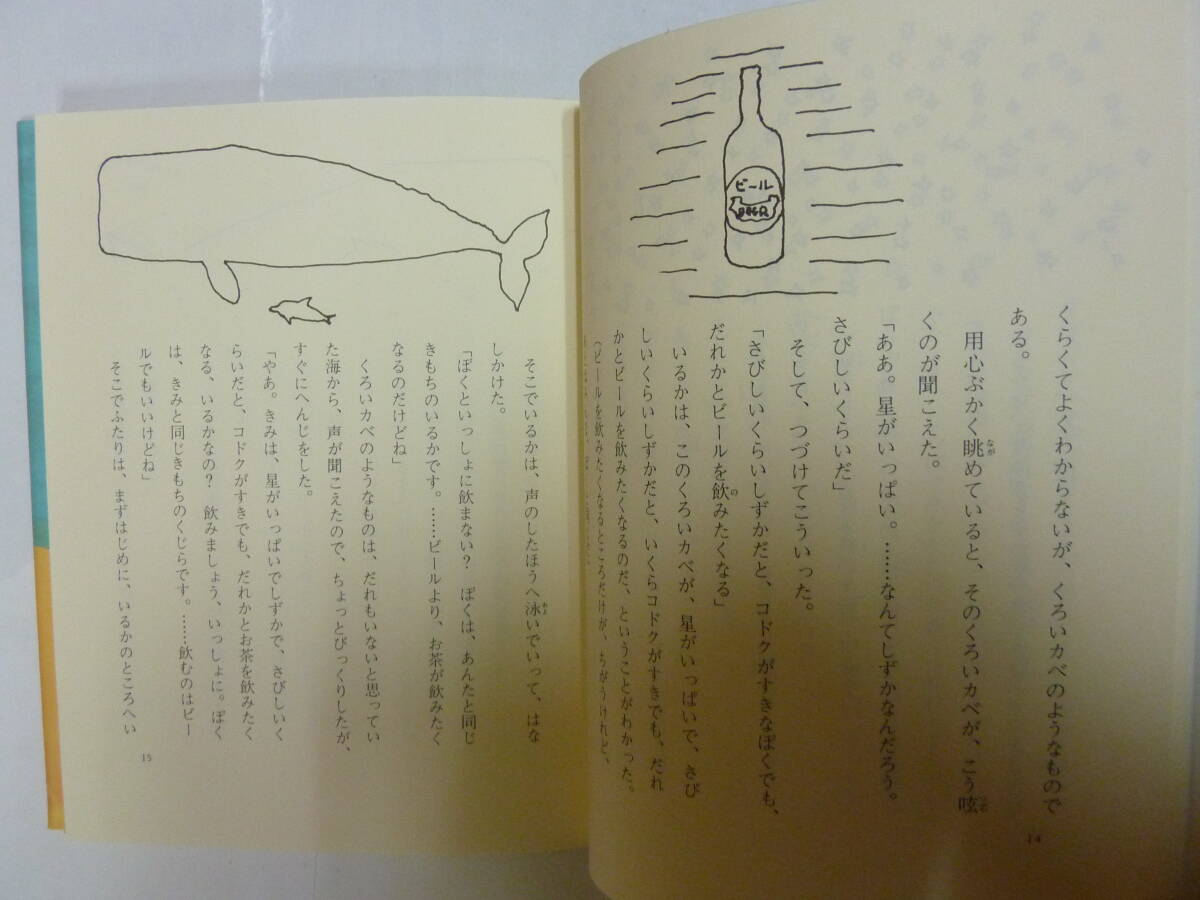 ビール
BEER
くらくてよくわからないが、くろいカベのようなもので
ある。
用心ぶかく眺めていると、そのくろいカベが、こう呟
くのが聞こえた。
「ああ。星がいっぱい。……なんてしずかなんだろう。
さびしいくらいだ」
そして、つづけてこういった。
「さびしいくらいしずかだと、コドクがすきなぼくでも、
だれかとビールを飲みたくなる」
いるかは、このくろいカベが、星がいっぱいで、さび
しいくらいしずかだと、いくらコドクがすきでも、だれ
かとビールを飲みたくなるのだ、ということがわかった。
(ビールを飲みたくなるところだけが、ちがうけれど、
14
そこでいるかは、声のしたほうへ泳いでいって、はな
しかけた。
「ぼくといっしょに飲まない? ぼくは、あんたと同じ
きもちのいるかです。……ビールより、お茶が飲みたく
なるのだけどね」
くろいカベのようなものは、だれもいないと思ってい
た海から、声が聞こえたので、ちょっとびっくりしたが、
すぐにへんじをした。
「やあ。きみは、星がいっぱいでしずかで、さびしいく
らいだと、コドクがすきでも、だれかとお茶を飲みたく
なる、いるかなの? 飲みましょう、いっしょに。ぼく
は、きみと同じきもちのくじらです。……飲むのはビー
ルでもいいけどね」
そこでふたりは、まずはじめに、いるかのところへい
15